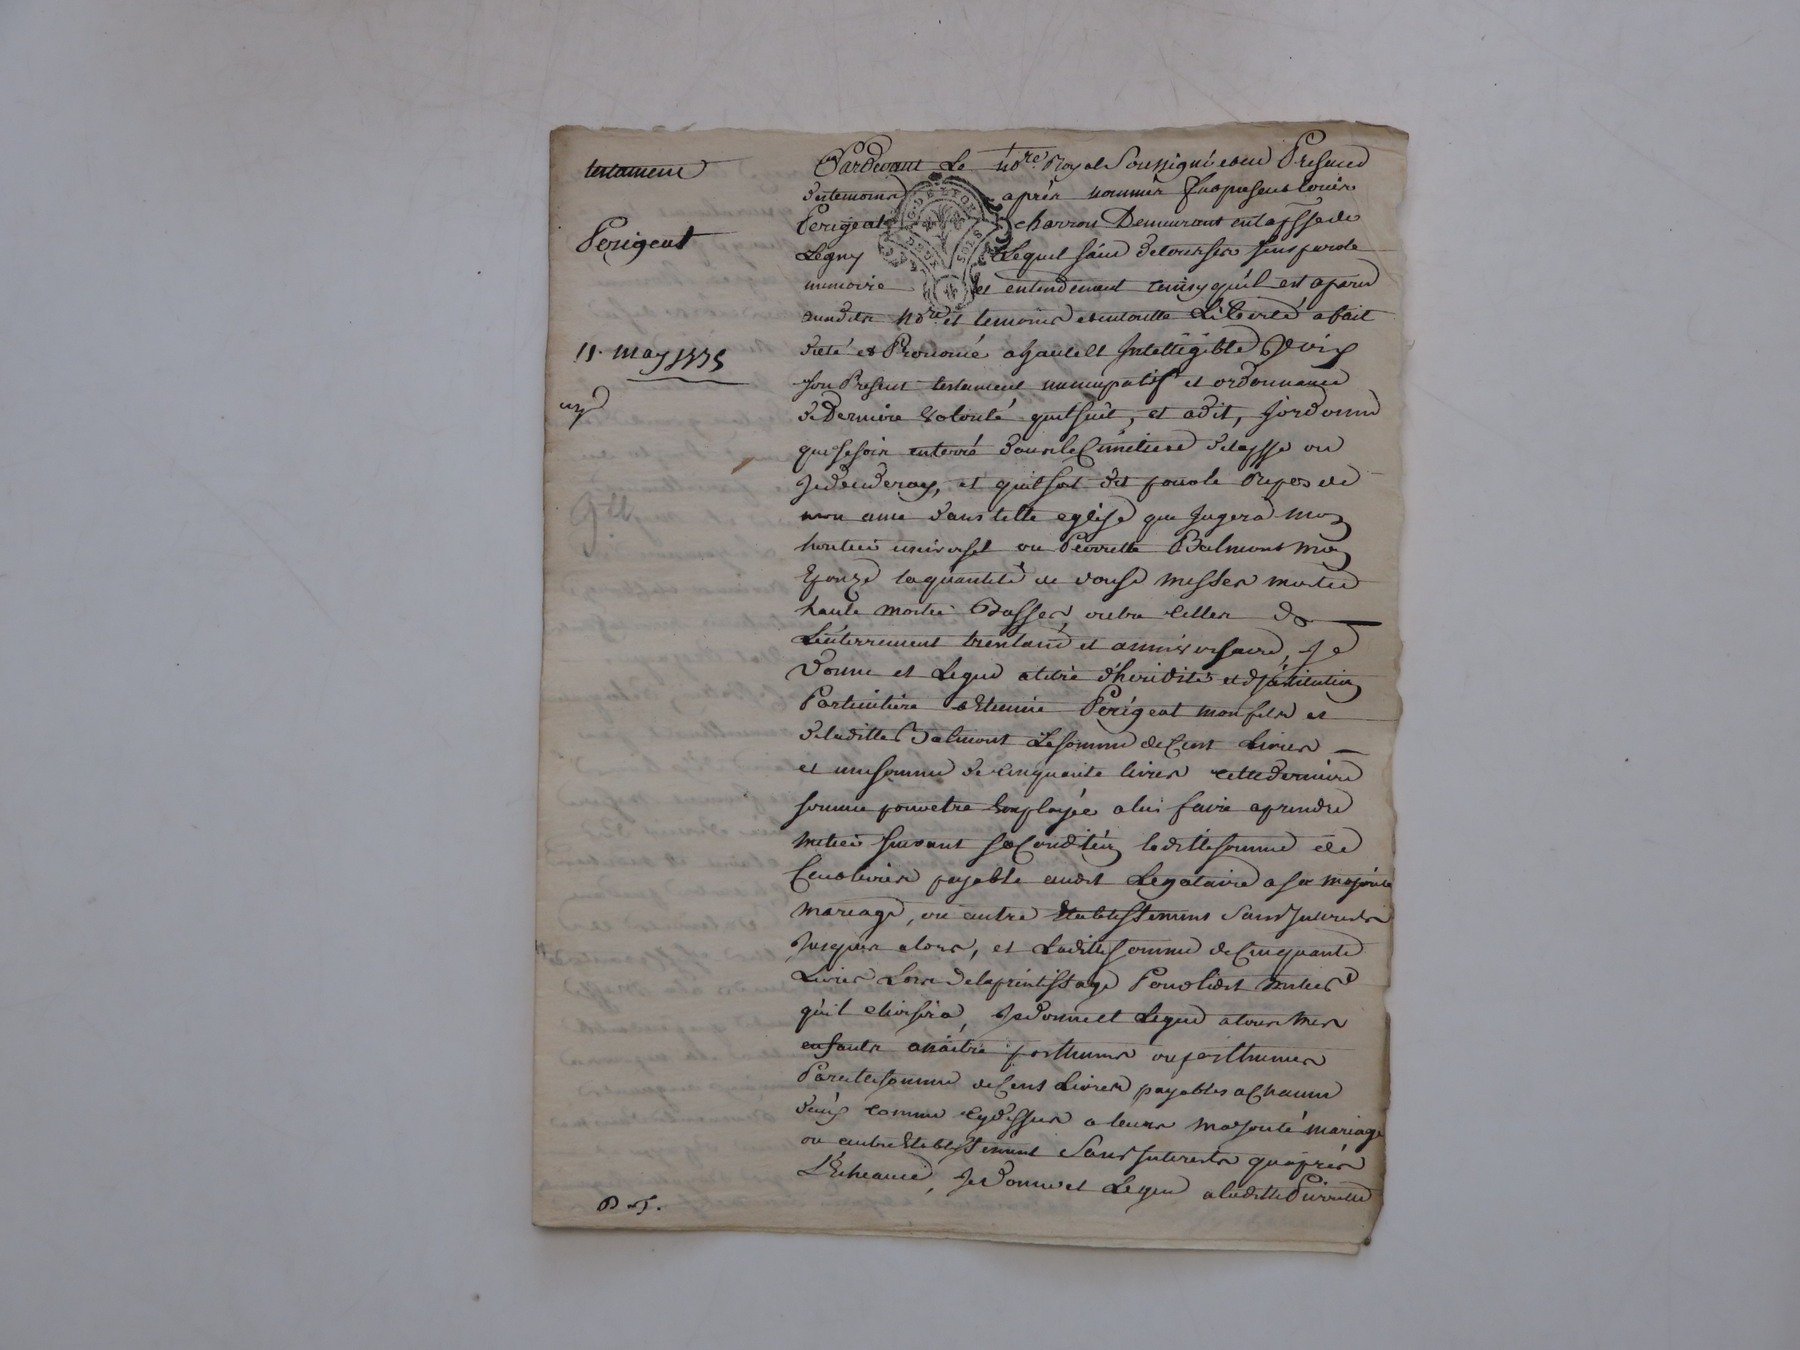 testament
Perigeat
11. may 1775
Pardevant Le no.re Royal Soussigné et en Presence
des temoins aprés nommés fut present Louis
Perigeat charron Demeurant en la psse de
Legny Lequel sain de tous ses sens parole
memoire et entendement ainsy qu'il est aparu
audit no.re et temoins et en toutte Liberté a fait
dicté et Prononcé a haute et Intelligible Voix
son Present testament nuncupatif et ordonnance
de Derniere volonté qui suit, et a dit, J'ordonne
que je sois enterré dans le Cimetiere de la psse ou
Je decederay, et qu'il soit dit pour le Repos de
mon ame dans telle eglise que Jugera mon
heritier universel ou Pierrette Balmont mon
Epouze la quantité de douse messes moitié
haute moitié Basses, outre celles de
L'enterrement trentaine et anniversaire, Je
Donne et Legue a titre d'hoiridité et d'jnstitution
Particuliere a Etienne Perigeat mon fils et
de laditte Balmont La somme de Cent Livres
et une somme de cinquante livres cette derniere
somme pour etre Employée a lui faire aprendre
metier suivant sa Condition laditte somme de
Cent livres payable audit Legataire a sa majorité
mariage, ou autre Etablissement sans Interests
Jusques alors, et Laditte somme de Cinquante
Livres Lors de laprintissage Pour ledit metier
qu'il choisira, Je donne et Legue a tous mes
enfants a naitre posthumes ou posthumes
Pareille somme de Cent Livres payables a Chacun
d'eux comme cy dessus a leurs majorité mariage
ou autre Etablissement sans Interests qu'aprés
L'Echeance, Je Donne et Legue a laditte Pierrette